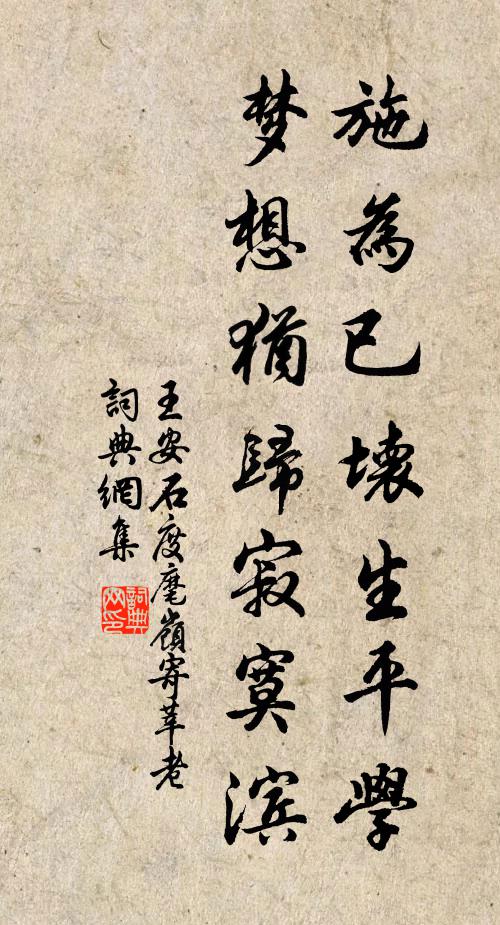 施為已壞生平學
梦想猶歸寂寞滨
王安石度麾嶺寄莘老
詞典網集
詞典网印